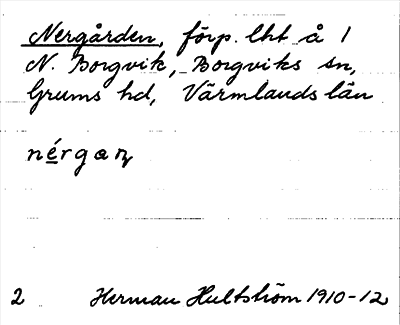 Nergården, förp. lht å 1
N. Borgvik, Borgviks sn,
Grums hd, Värmlands län
nérgaɳ
2 Herman Hultström 1910-12